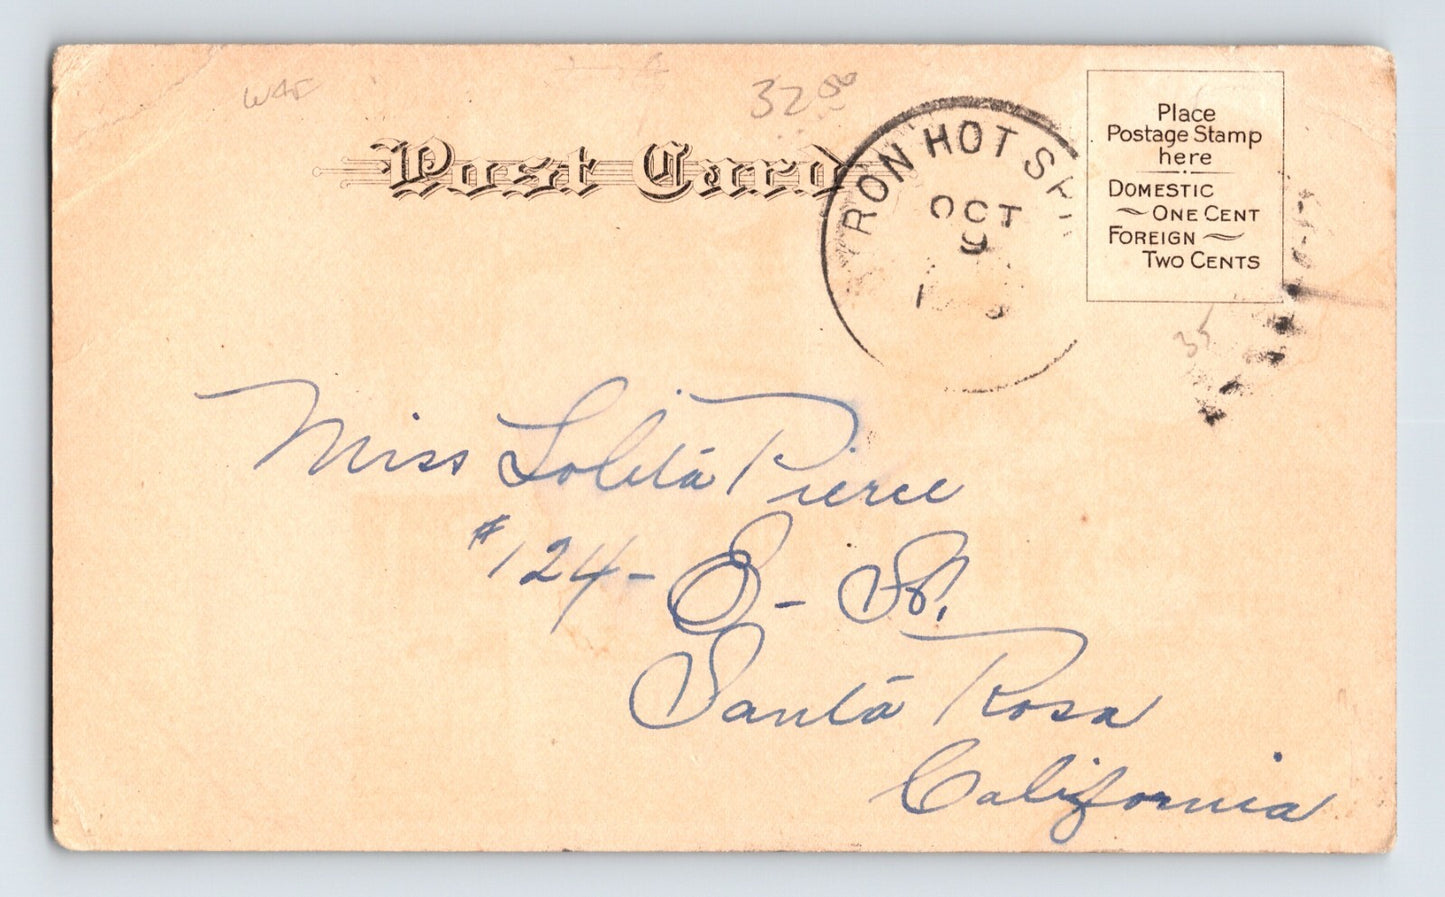 32.00
Post Card
YRON HOT SP
OCT
9
Place
Postage Stamp
here
DOMESTIC
ONE CENT
FOREIGN
TWO CENTS
35
Miss Lolita Pierce
#124 - O - St.
Santa Rosa
California